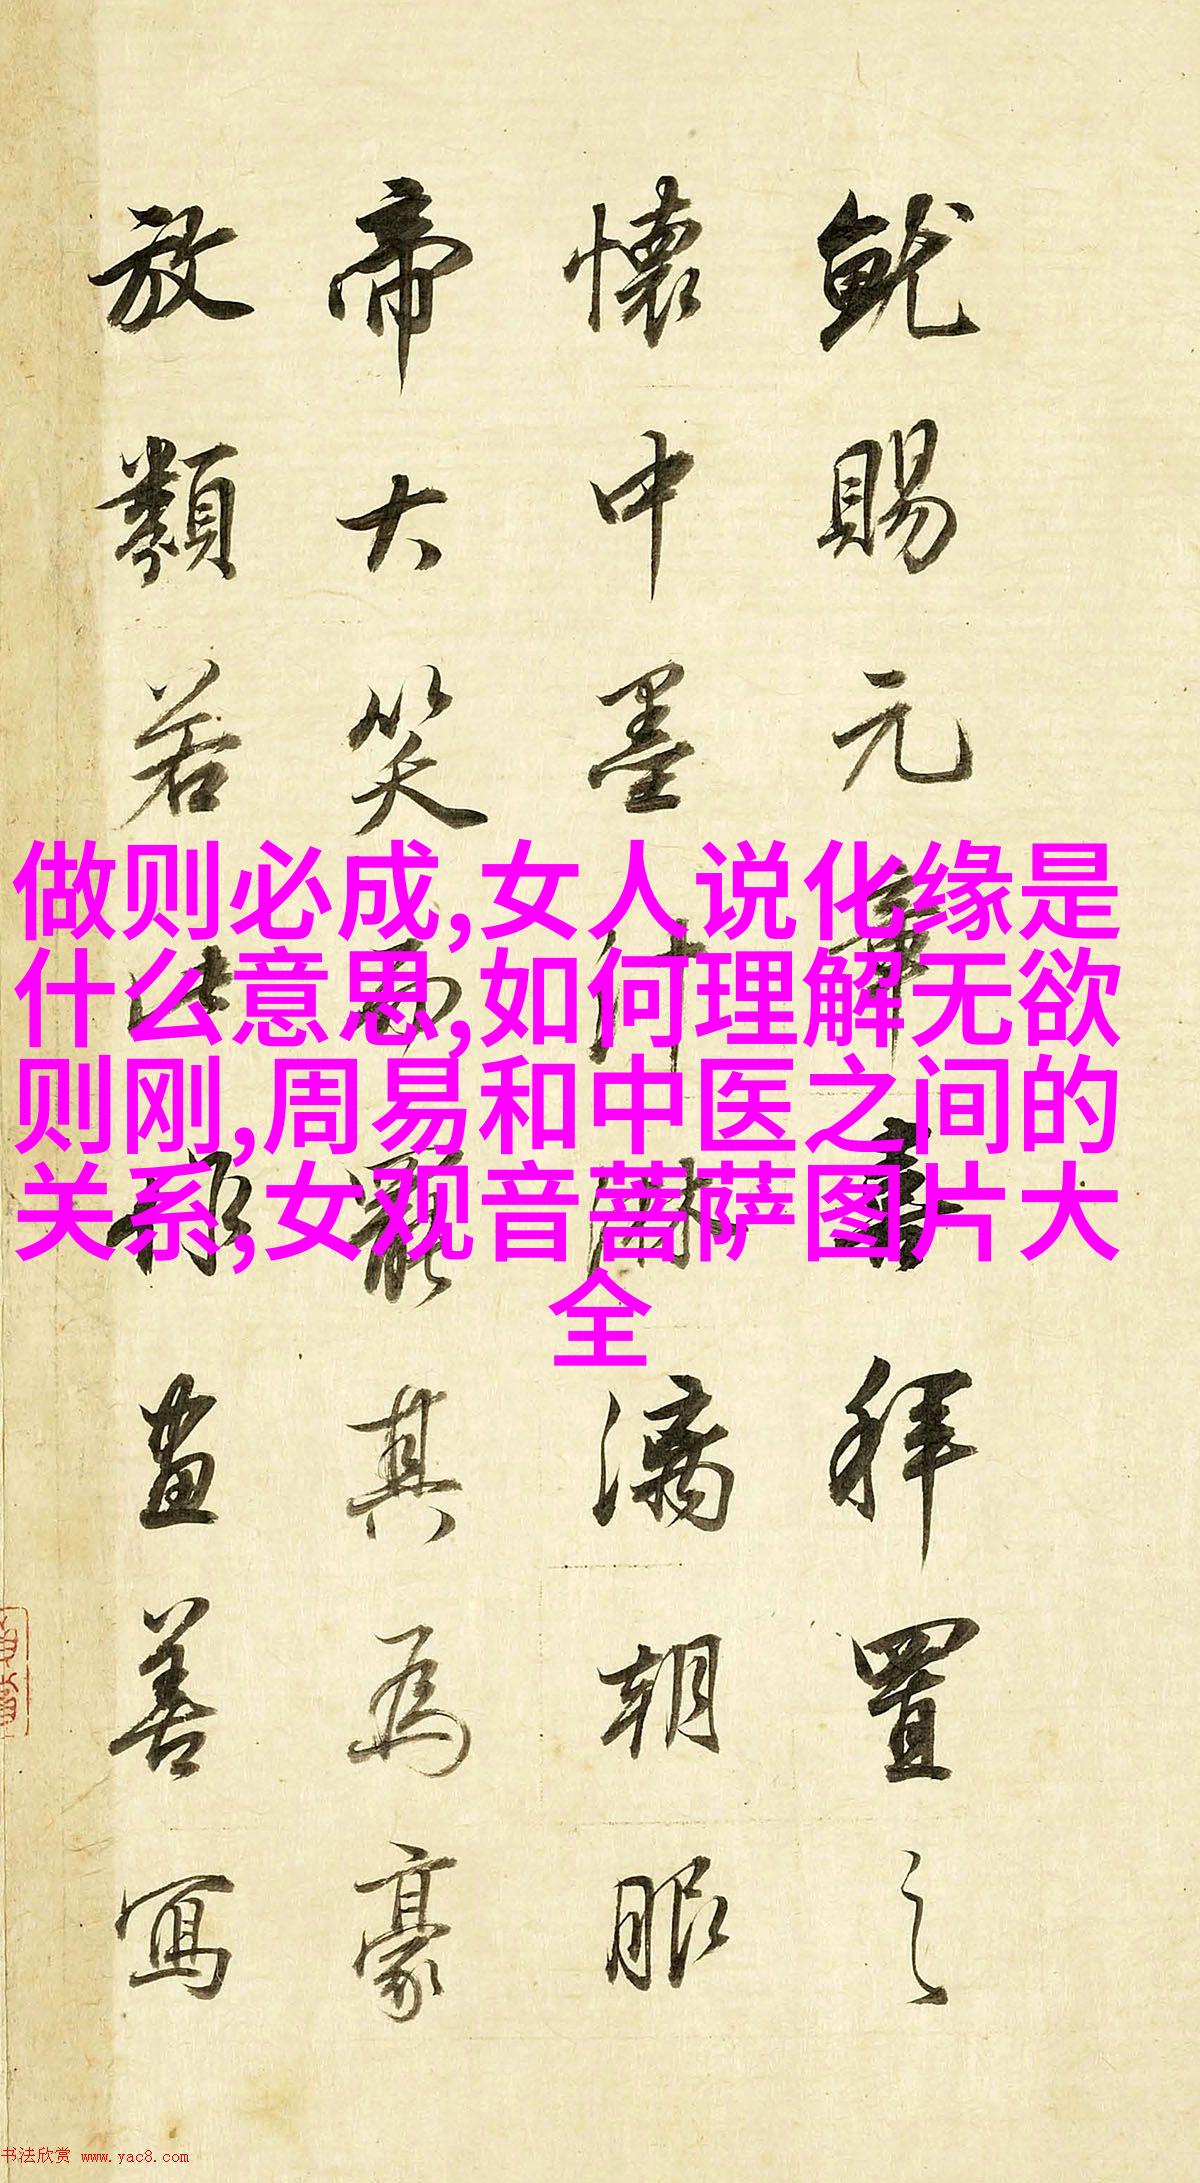 就賜元章拜置之
懷中墨汁淋漓朝服
帝大笑而罷其為豪
放類若此畫善寫
做则必成,女人说化缘是
什么意思,如何理解无欲
则刚,周易和中医之间的
关系,女观音菩萨图片大
全
书法欣赏 www.yac8.com